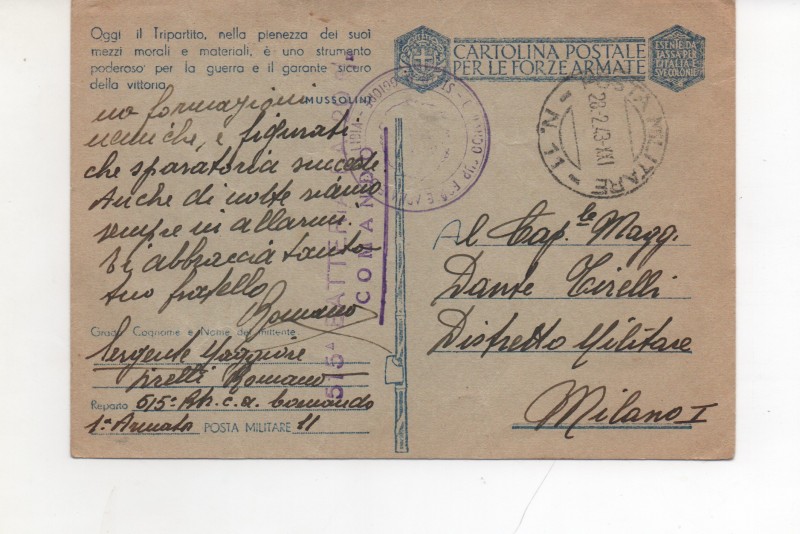 Oggi il Tripartito, nella pienezza dei suoi
mezzi morali e materiali, è uno strumento
poderoso per la guerra e il garante sicuro
della vittoria.
MUSSOLINI
no formazioni
nemiche, e figurati
che sparatoria succede
Anche di notte siamo
sempre in allarmi.
Ti abbraccia tanto
tuo fratello
Romano
Grado, Cognome e Nome del mittente
Sergente Maggiore
Tirelli Romano
Reparto 515ª Btr. c.a. Comando
1ª Armata POSTA MILITARE 11
515ª BATTERIA DA 20
COMANDO
CARTOLINA POSTALE
PER LE FORZE ARMATE
ESENTE DA
TASSA PER
L'ITALIA E
SUE COLONIE
POSTA MILITARE
28.2.43-XXI
- N. 11 -
Al Cap.le Magg.
Dante Tirelli
Distretto Militare
Milano I